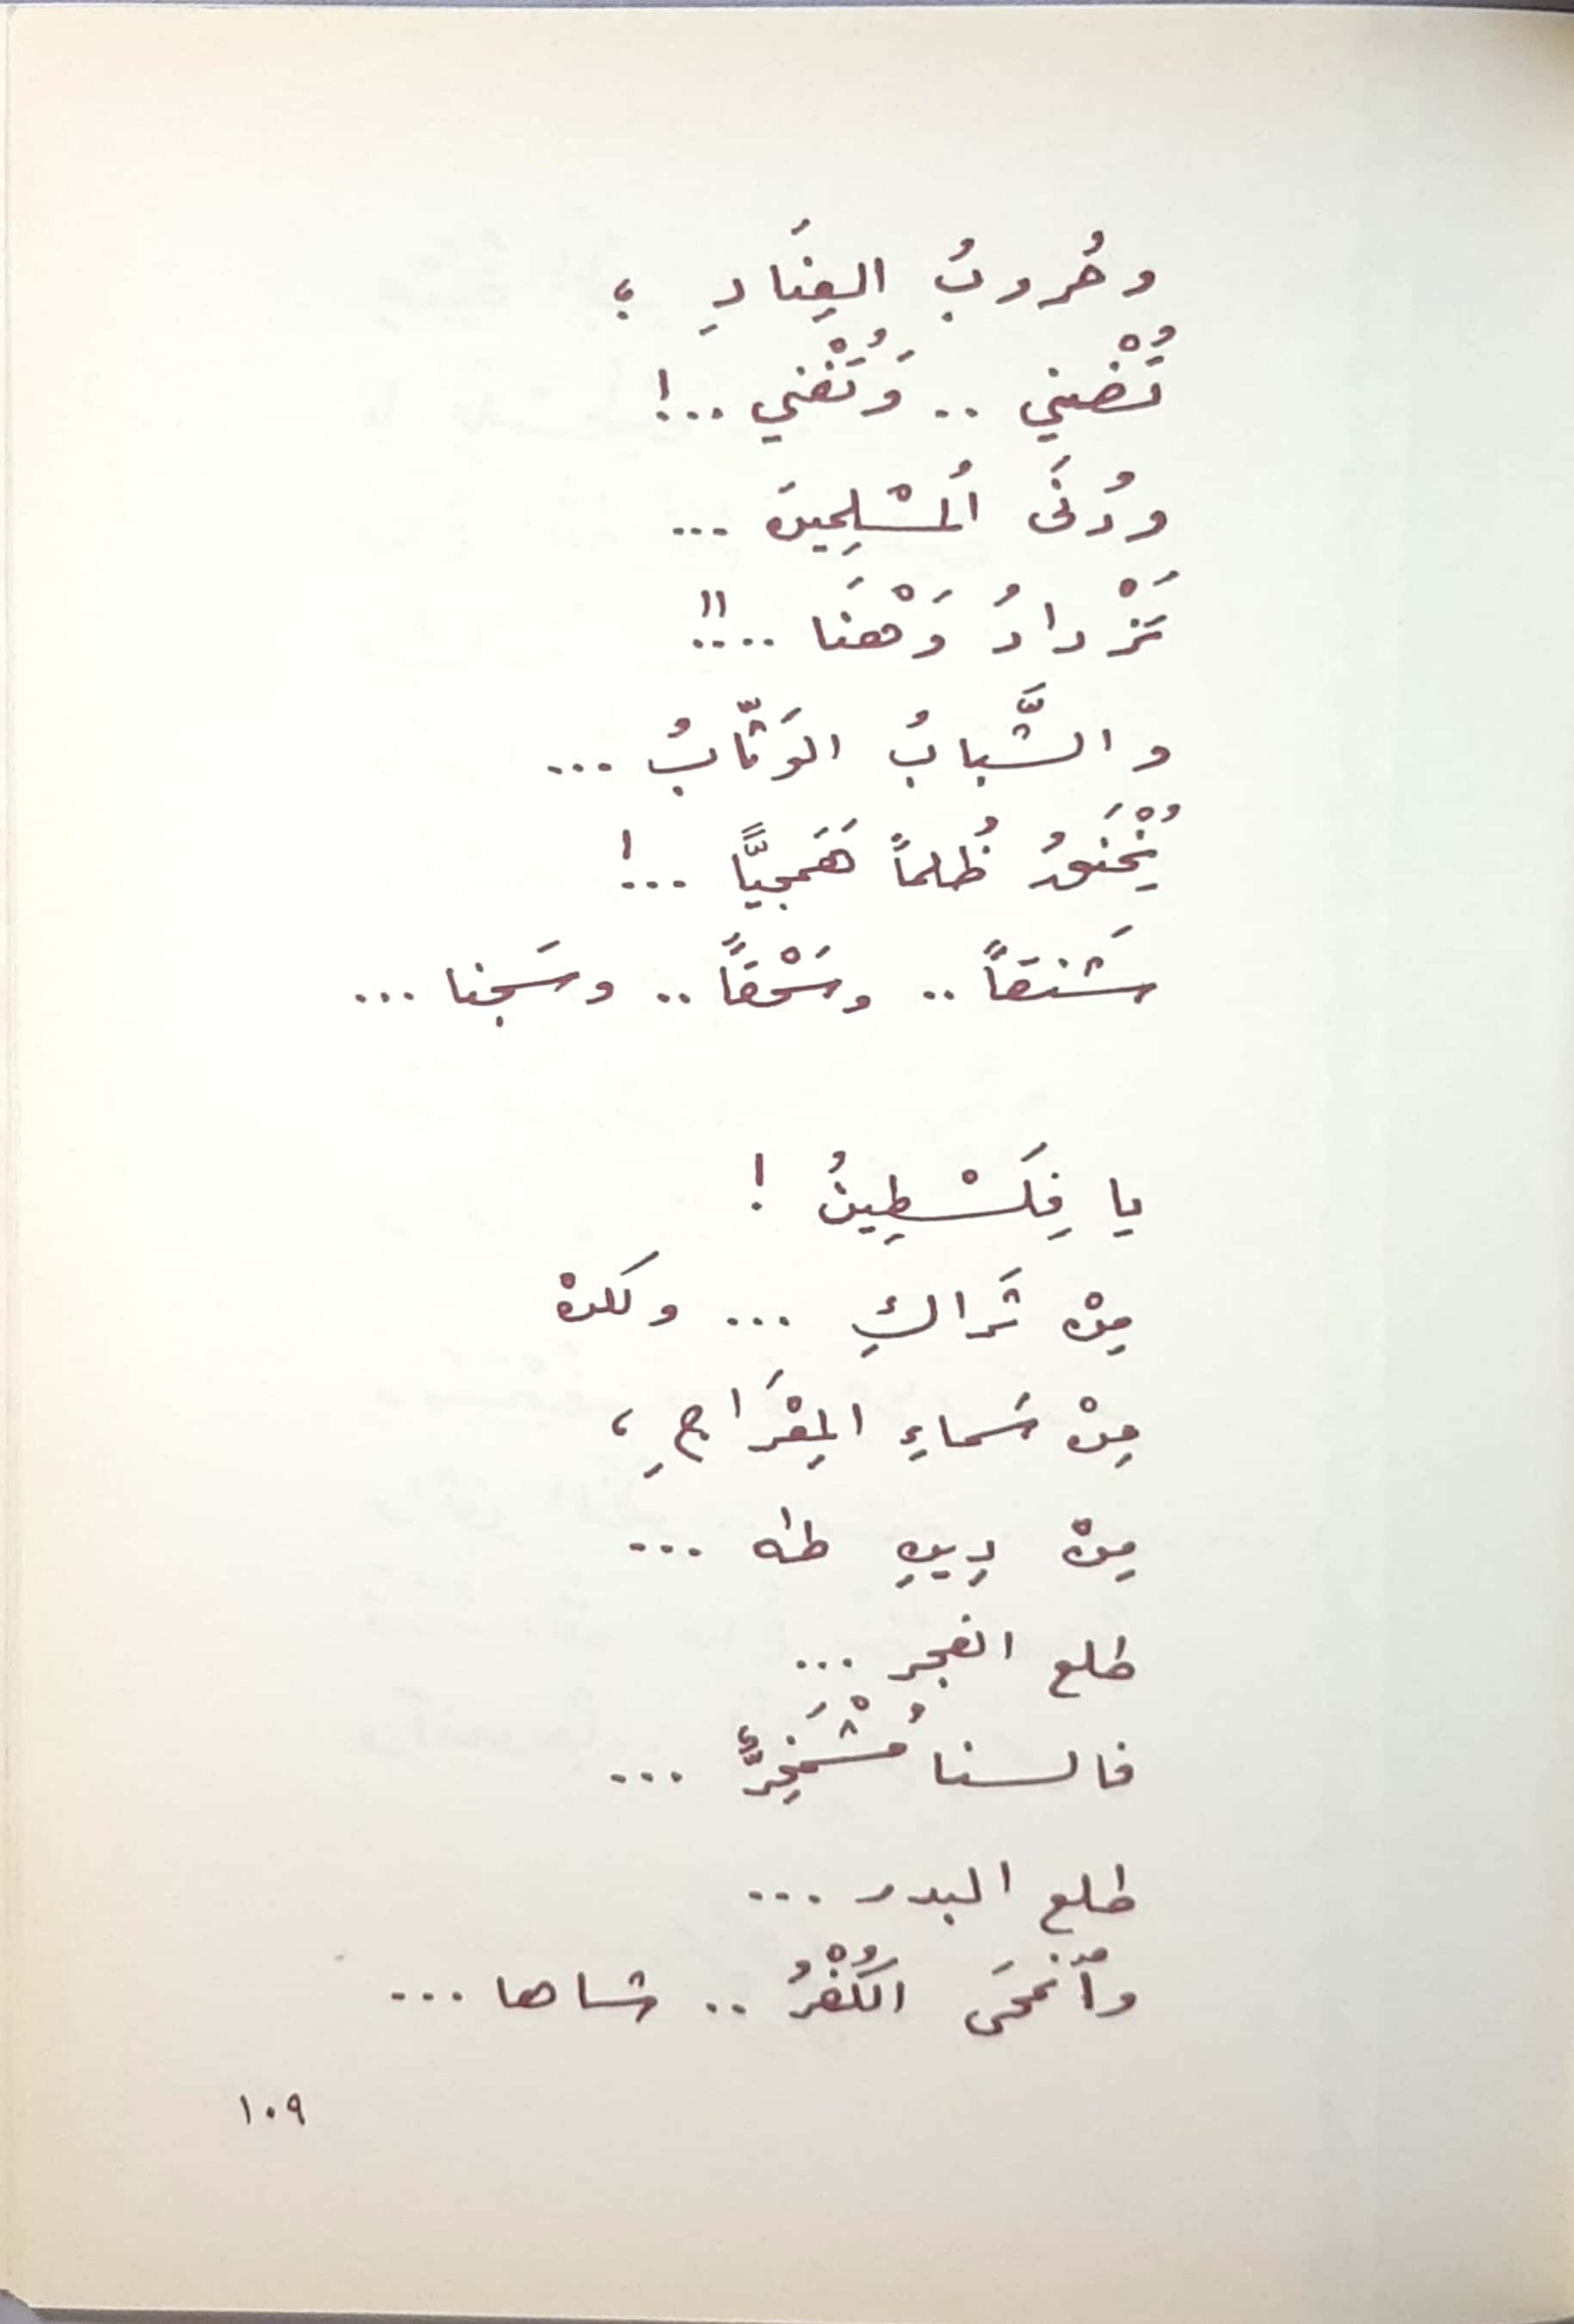 وحُروبُ العِنَادِ ؛
تُضْني .. وَتُفْني ..!
ودُنَى المُسْلِمينَ ...
تَزْدادُ وَهْنَا ..!!
والشَّبابُ الوَثّابُ ...
يُخْنَقُ ظُلماً هَمَجيًّا ...!
شَنقاً .. وسَحْقاً .. وسَجنا ...
يا فِلَسْطِينُ !
مِنْ ثَراكِ ... ولكنْ
مِنْ سَماءِ المِعْرَاجِ ،
مِنْ دِينِ طٰه ...
طلع الفجر ...
فالسنا مُشْمَخِرٌّ ...
طلع البدر ...
وٱنمحَى الكُفْرُ .. شاها ...
١٠٩